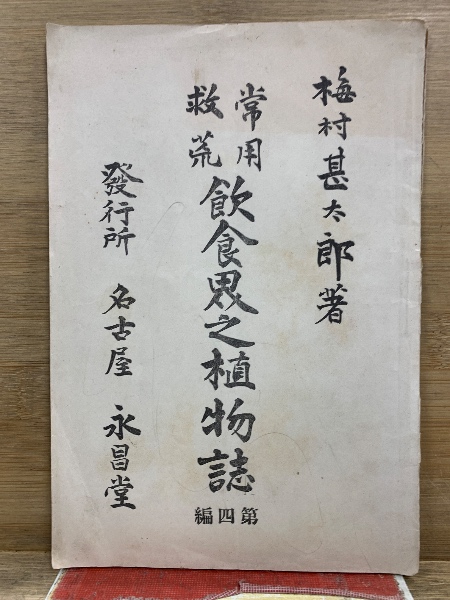 梅村甚太郎著
常用
救荒
飲食界之植物誌
第四編
發行所 名古屋 永昌堂